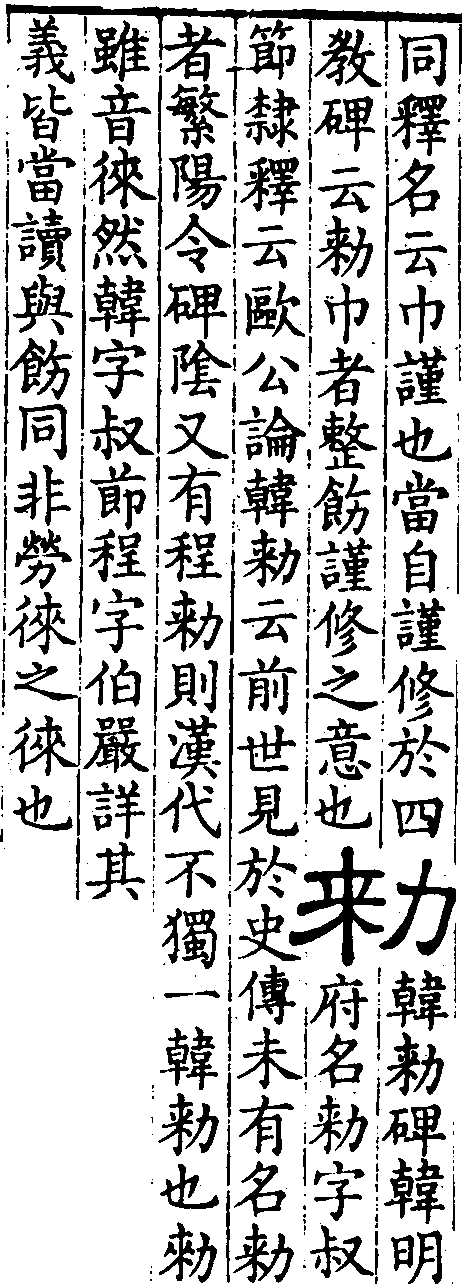 同釋名云巾謹也當自謹修於四
教碑云勑巾者整飭謹修之意也
勑
韓勑碑韓明
府名勑字叔
節隸釋云歐公論韓勑云前世見於史傳未有名勑
者繁陽令碑陰又有程勑則漢代不獨一韓勑也勑
雖音徠然韓字叔節程字伯嚴詳其
義皆當讀與飭同非勞徠之徠也